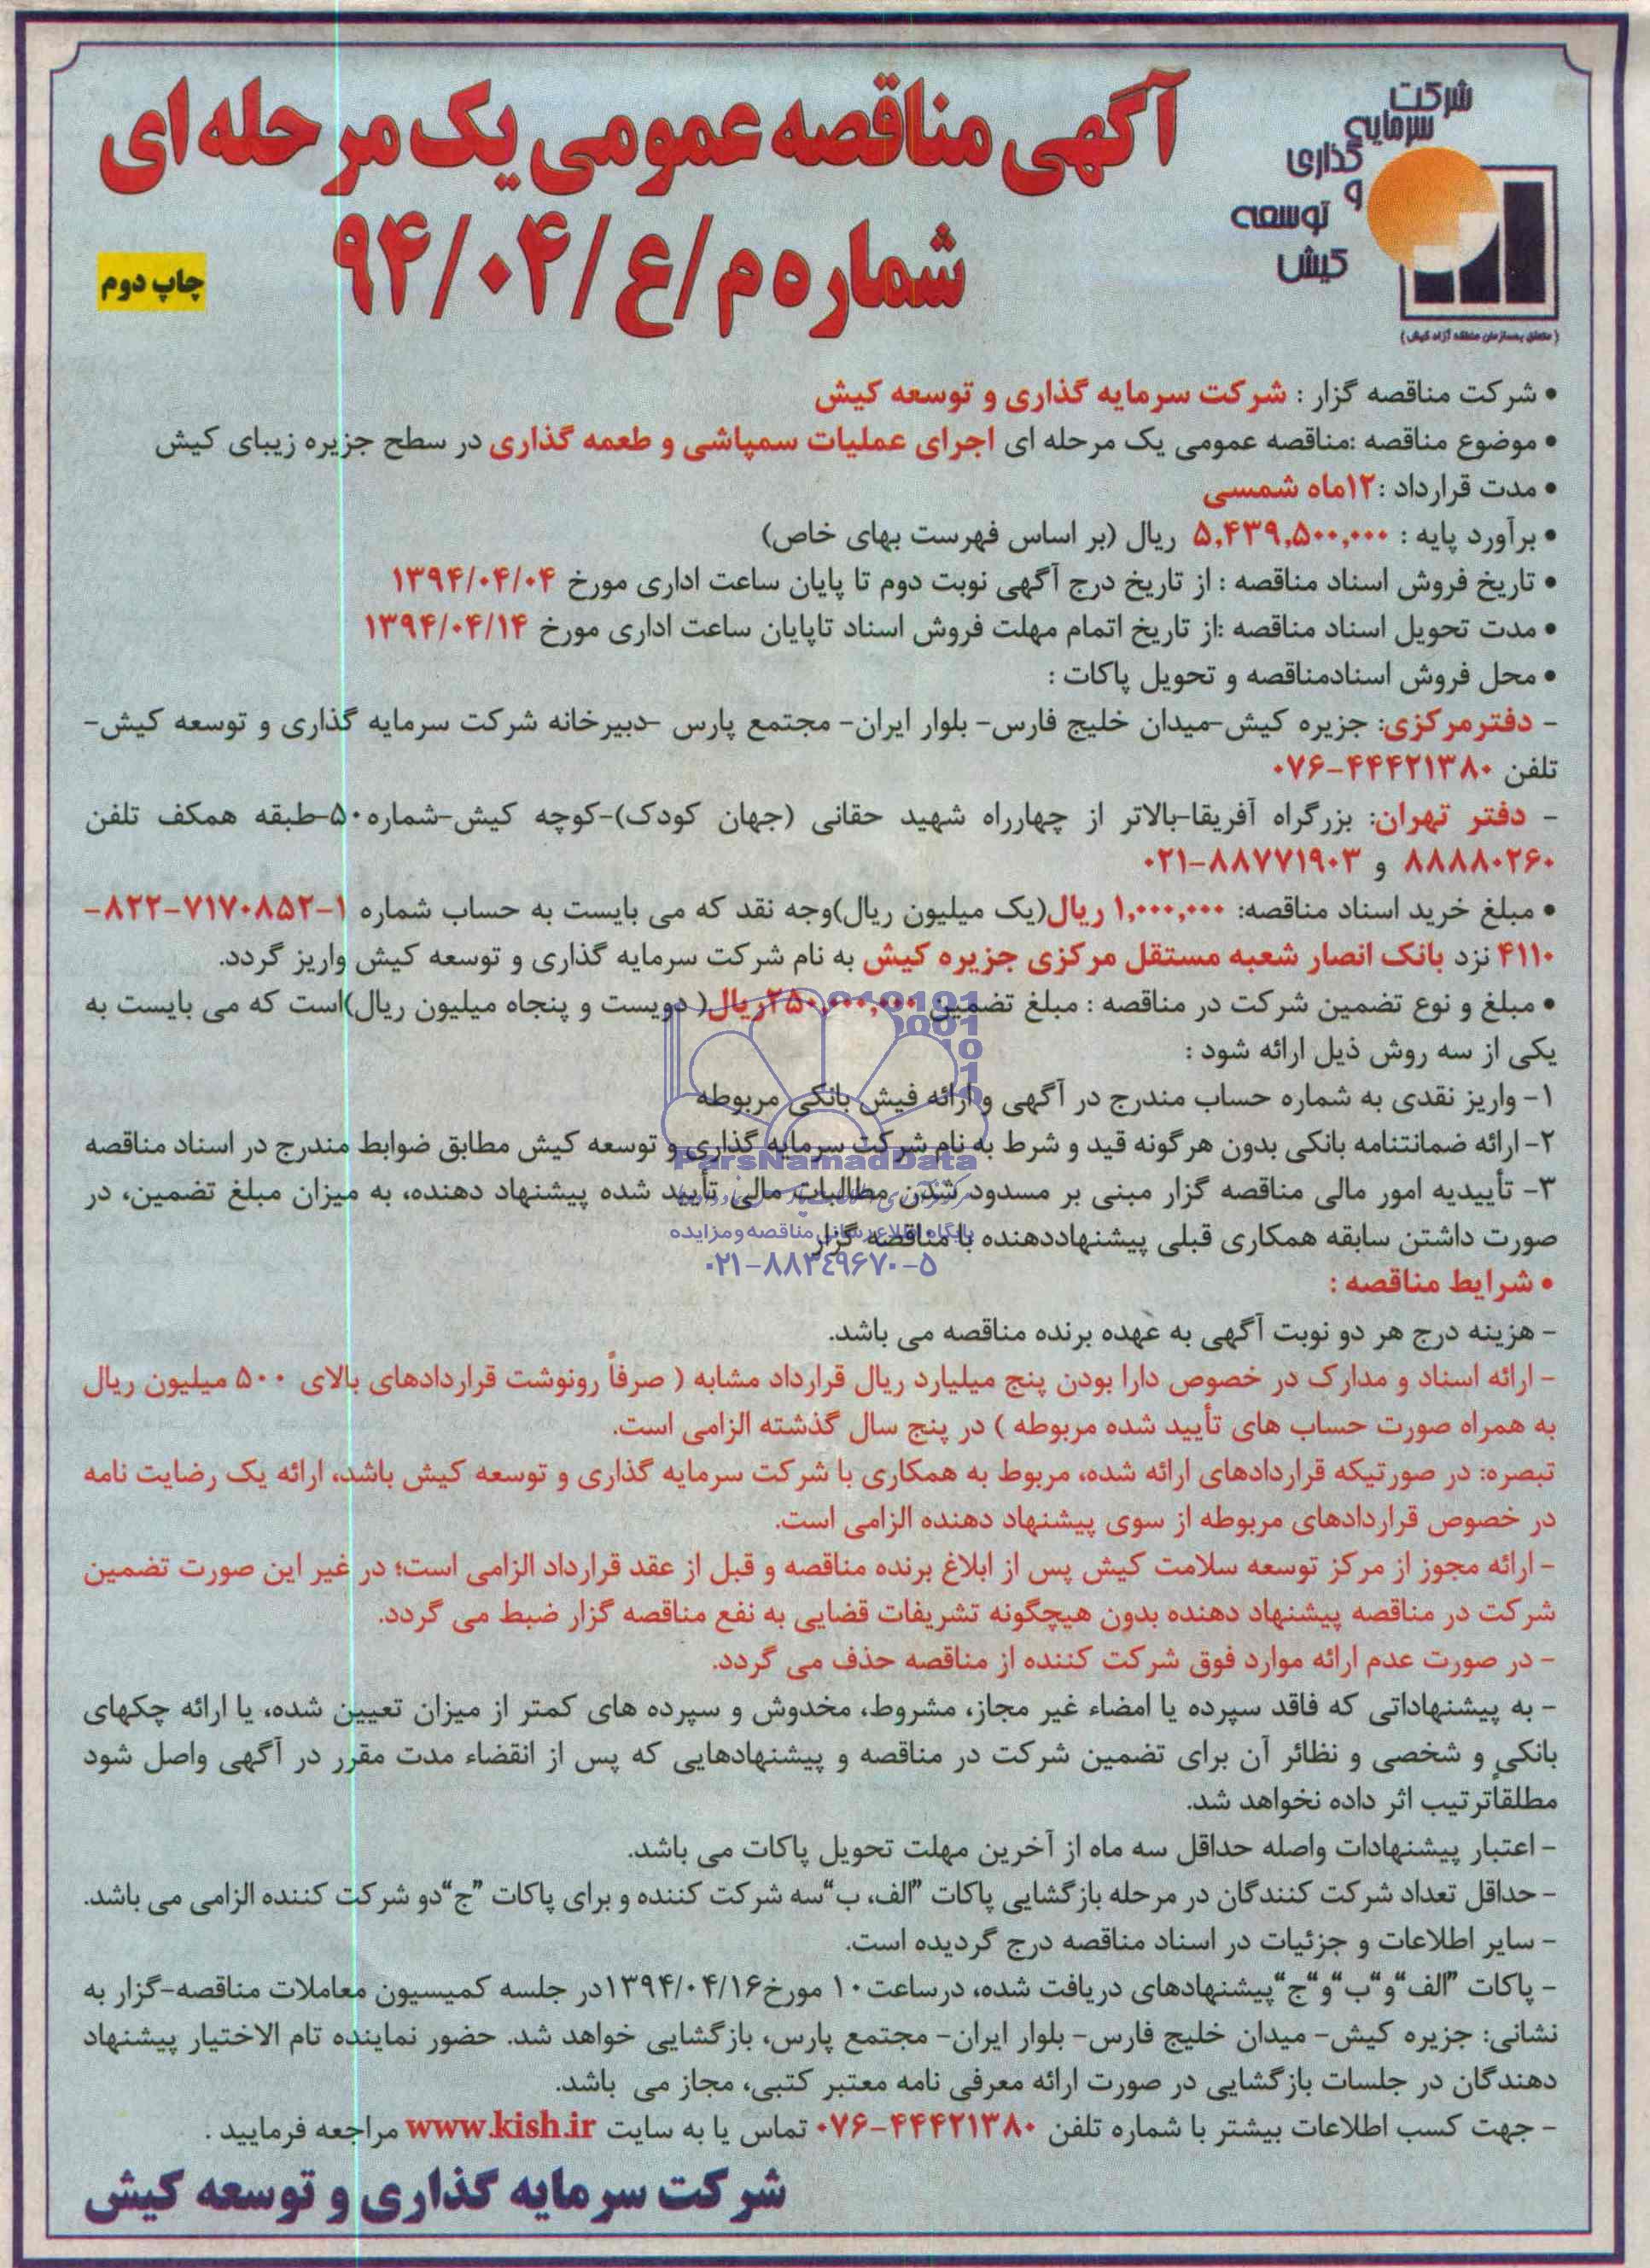 شرکت
سرمایه
گذاری
و
توسعه
کیش
( متعلق بسازمان منطقه آزاد کیش )
آگهی مناقصه عمومی یک مرحله ای
شماره م/ع/۹۴/۰۴
چاپ دوم
• شرکت مناقصه گزار : شرکت سرمایه گذاری و توسعه کیش
• موضوع مناقصه :مناقصه عمومی یک مرحله ای اجرای عملیات سمپاشی و طعمه گذاری در سطح جزیره زیبای کیش
• مدت قرارداد :۱۲ماه شمسی
• برآورد پایه : ۵,۴۳۹,۵۰۰,۰۰۰ ریال (بر اساس فهرست بهای خاص)
• تاریخ فروش اسناد مناقصه : از تاریخ درج آگهی نوبت دوم تا پایان ساعت اداری مورخ ۱۳۹۴/۰۴/۰۴
• مدت تحویل اسناد مناقصه :از تاریخ اتمام مهلت فروش اسناد تاپایان ساعت اداری مورخ ۱۳۹۴/۰۴/۱۴
• محل فروش اسنادمناقصه و تحویل پاکات :
- دفترمرکزی: جزیره کیش-میدان خلیج فارس- بلوار ایران- مجتمع پارس -دبیرخانه شرکت سرمایه گذاری و توسعه کیش-
تلفن ۰۷۶-۴۴۴۲۱۳۸۰
- دفتر تهران: بزرگراه آفریقا-بالاتر از چهارراه شهید حقانی (جهان کودک)-کوچه کیش-شماره۵۰-طبقه همکف تلفن
۸۸۸۸۰۲۶۰ و ۰۲۱-۸۸۷۷۱۹۰۳
• مبلغ خرید اسناد مناقصه: ۱,۰۰۰,۰۰۰ ریال(یک میلیون ریال)وجه نقد که می بایست به حساب شماره ۱-۷۱۷۰۸۵۲-۸۲۲-
۴۱۱۰ نزد بانک انصار شعبه مستقل مرکزی جزیره کیش به نام شرکت سرمایه گذاری و توسعه کیش واریز گردد.
• مبلغ و نوع تضمین شرکت در مناقصه : مبلغ تضمین ۲۵۰,۰۰۰,۰۰۰ریال( دویست و پنجاه میلیون ریال)است که می بایست به
یکی از سه روش ذیل ارائه شود :
۱- واریز نقدی به شماره حساب مندرج در آگهی و ارائه فیش بانکی مربوطه
۲- ارائه ضمانتنامه بانکی بدون هر گونه قید و شرط به نام شرکت سرمایه گذاری و توسعه کیش مطابق ضوابط مندرج در اسناد مناقصه
ParsNamadData
۳- تأییدیه امور مالی مناقصه گزار مبنی بر مسدود شدن مطالبات مالی تأیید شده پیشنهاد دهنده، به میزان مبلغ تضمین، در
صورت داشتن سابقه همکاری قبلی پیشنهاددهنده با مناقصه گزار
پایگاه اطلاع رسانی مناقصه و مزایده
۰۲۱-۸۸۳۴۹۶۷۰-۵
• شرایط مناقصه :
- هزینه درج هر دو نوبت آگهی به عهده برنده مناقصه می باشد.
- ارائه اسناد و مدارک در خصوص دارا بودن پنج میلیارد ریال قرارداد مشابه ( صرفاً رونوشت قراردادهای بالای ۵۰۰ میلیون ریال
به همراه صورت حساب های تأیید شده مربوطه ) در پنج سال گذشته الزامی است.
تبصره: در صورتیکه قراردادهای ارائه شده، مربوط به همکاری با شرکت سرمایه گذاری و توسعه کیش باشد، ارائه یک رضایت نامه
در خصوص قراردادهای مربوطه از سوی پیشنهاد دهنده الزامی است.
- ارائه مجوز از مرکز توسعه سلامت کیش پس از ابلاغ برنده مناقصه و قبل از عقد قرارداد الزامی است؛ در غیر این صورت تضمین
شرکت در مناقصه پیشنهاد دهنده بدون هیچگونه تشریفات قضایی به نفع مناقصه گزار ضبط می گردد.
- در صورت عدم ارائه موارد فوق شرکت کننده از مناقصه حذف می گردد.
- به پیشنهاداتی که فاقد سپرده یا امضاء غیر مجاز، مشروط، مخدوش و سپرده های کمتر از میزان تعیین شده، یا ارائه چکهای
بانکی و شخصی و نظائر آن برای تضمین شرکت در مناقصه و پیشنهادهایی که پس از انقضاء مدت مقرر در آگهی واصل شود
مطلقاًترتیب اثر داده نخواهد شد.
- اعتبار پیشنهادات واصله حداقل سه ماه از آخرین مهلت تحویل پاکات می باشد.
- حداقل تعداد شرکت کنندگان در مرحله بازگشایی پاکات "الف، ب"سه شرکت کننده و برای پاکات "ج"دو شرکت کننده الزامی می باشد.
- سایر اطلاعات و جزئیات در اسناد مناقصه درج گردیده است.
- پاکات "الف"و"ب"و"ج"پیشنهادهای دریافت شده، درساعت۱۰ مورخ۱۳۹۴/۰۴/۱۶در جلسه کمیسیون معاملات مناقصه-گزار به
نشانی: جزیره کیش- میدان خلیج فارس- بلوار ایران- مجتمع پارس، بازگشایی خواهد شد. حضور نماینده تام الاختیار پیشنهاد
دهندگان در جلسات بازگشایی در صورت ارائه معرفی نامه معتبر کتبی، مجاز می باشد.
- جهت کسب اطلاعات بیشتر با شماره تلفن ۰۷۶-۴۴۴۲۱۳۸۰ تماس یا به سایت www.kish.ir مراجعه فرمایید .
شرکت سرمایه گذاری و توسعه کیش